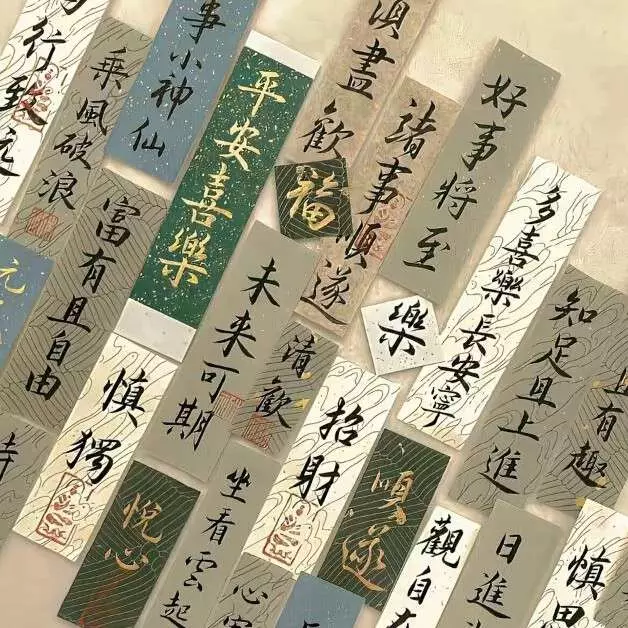 行致远
乘風破浪
事小神仙
平安喜樂
福
盡歡
諸事順遂
好事將至
多喜樂長安寧
知足且上進
且有趣
富有且自由
未来可期
清歡
樂
慎獨
招財
順遂
悦心
坐看雲起
觀自在
日進
慎思
心
元